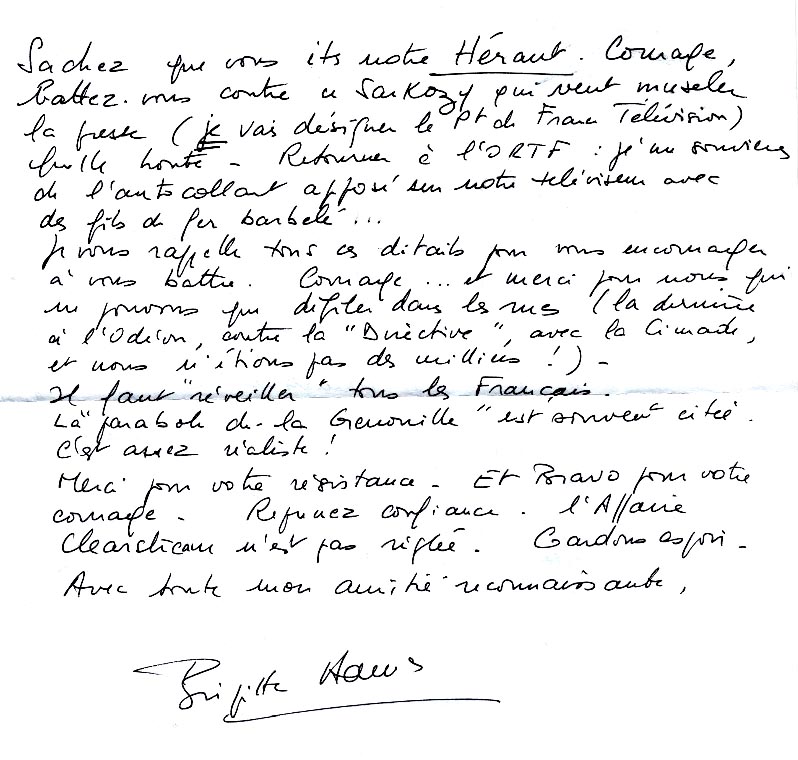 Sachez que vous êtes notre Héraut. Courage,
battez-vous contre ce Sarkozy qui veut museler
la presse (je vais désigner le Pt de France Télévision)
Quelle honte - Retourner à l'ORTF : je me souviens
de l'autocollant apposé sur notre téléviseur avec
des fils de fer barbelé...
Je vous rappelle tous ces détails pour vous encourager
à vous battre. Courage... et merci pour nous qui
ne pouvons que défiler dans les rues (la dernière
à l'Odéon, contre la "Directive", avec la Cimade,
et nous n'étions pas des milliers !) -
Il faut "réveiller" tous les Français.
La "parabole de la Grenouille" est souvent citée.
C'est assez réaliste !
Merci pour votre résistance - Et Bravo pour votre
courage - confiance. l'Affaire
Clearstream n'est pas réglée. Gardons espoir -
Avec toute mon amitié reconnaissante,
Brigitte